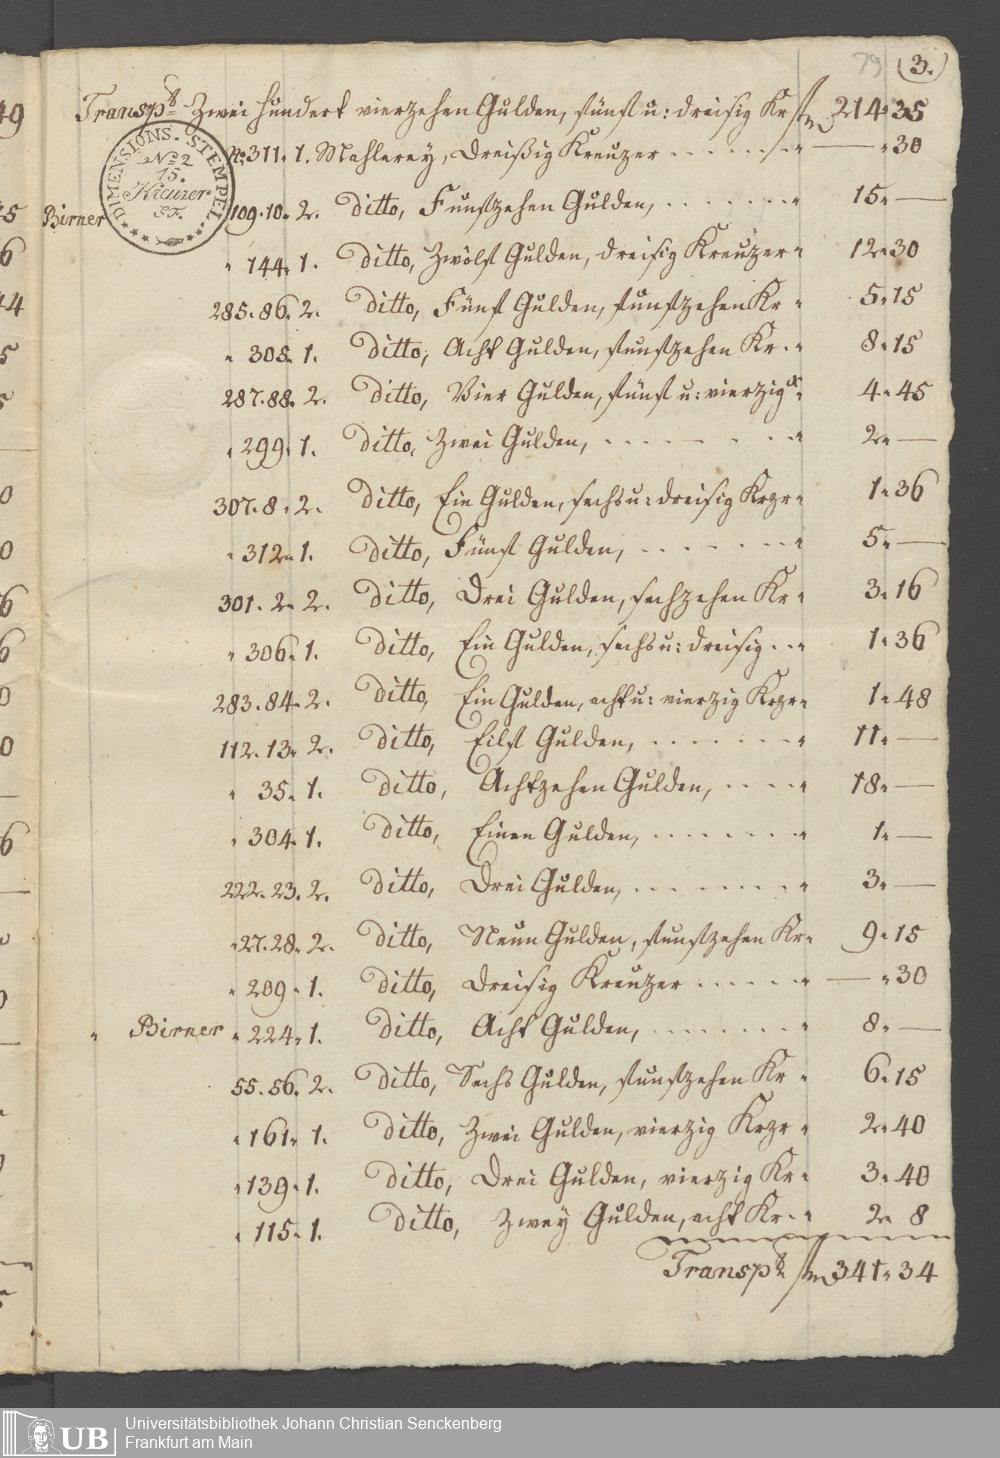 79 (3.)
Transpt Zwei Hundert vierzehen Gulden, fünf u: dreisig Kr 214 " 35
No 311. 1. Mahlerey, Dreißig Kreuzer . . . . . " — " 30
DIMENSIONS-STEMPEL
No 2
15.
Kreuzer
Birner 109.10. 2. ditto, Funfzehen Gulden, . . . . . . . " 15 " —
" 144. 1. ditto, Zwölf Gulden, dreisig Kreuzer " 12 " 30
285. 86. 2. ditto, Fünf Gulden, funfzehen Kr " 5 " 15
" 305. 1. ditto, Acht Gulden, funfzehen Kr . " 8 " 15
287. 88. 2. ditto, Vier Gulden, fünf u: vierzig x " 4 " 45
" 299. 1. ditto, Zwei Gulden, . . . . . . . " 2 " —
307. 8. 2. ditto, Ein Gulden, sechs u: dreisig Krzr " 1 " 36
" 312. 1. ditto, Fünf Gulden, . . . . . . " 5 " —
301. 2. 2. ditto, Drei Gulden, sechzehen Kr " 3 " 16
" 306. 1. ditto, Ein Gulden, sechs u: dreisig . . " 1 " 36
283. 84. 2. ditto, Ein Gulden, acht u: vierzig Krzr " 1 " 48
112. 13. 2. ditto, Eilf Gulden, . . . . . . . " 11 " —
" 35. 1. ditto, Achtzehen Gulden, . . . . " 18 " —
" 304. 1. ditto, Einen Gulden, . . . . . . . " 1 " —
222. 23. 2. ditto, Drei Gulden, . . . . . . . " 3 " —
" 27. 28. 2. ditto, Neun Gulden, funfzehen Kr " 9 " 15
" 209. 1. ditto, Dreisig Kreuzer . . . . . . " — " 30
" Birner " 224. 1. ditto, Acht Gulden, . . . . . . . " 8 " —
55. 56. 2. ditto, Sechs Gulden, funfzehen Kr " 6 " 15
" 161. 1. ditto, Zwei Gulden, vierzig Krzr " 2 " 40
" 139. 1. ditto, Drei Gulden, vierzig Kr " 3 " 40
" 115. 1. ditto, Zwey Gulden, acht Kr . " 2 " 8
Transpt 341 " 34
UB Universitätsbibliothek Johann Christian Senckenberg
Frankfurt am Main